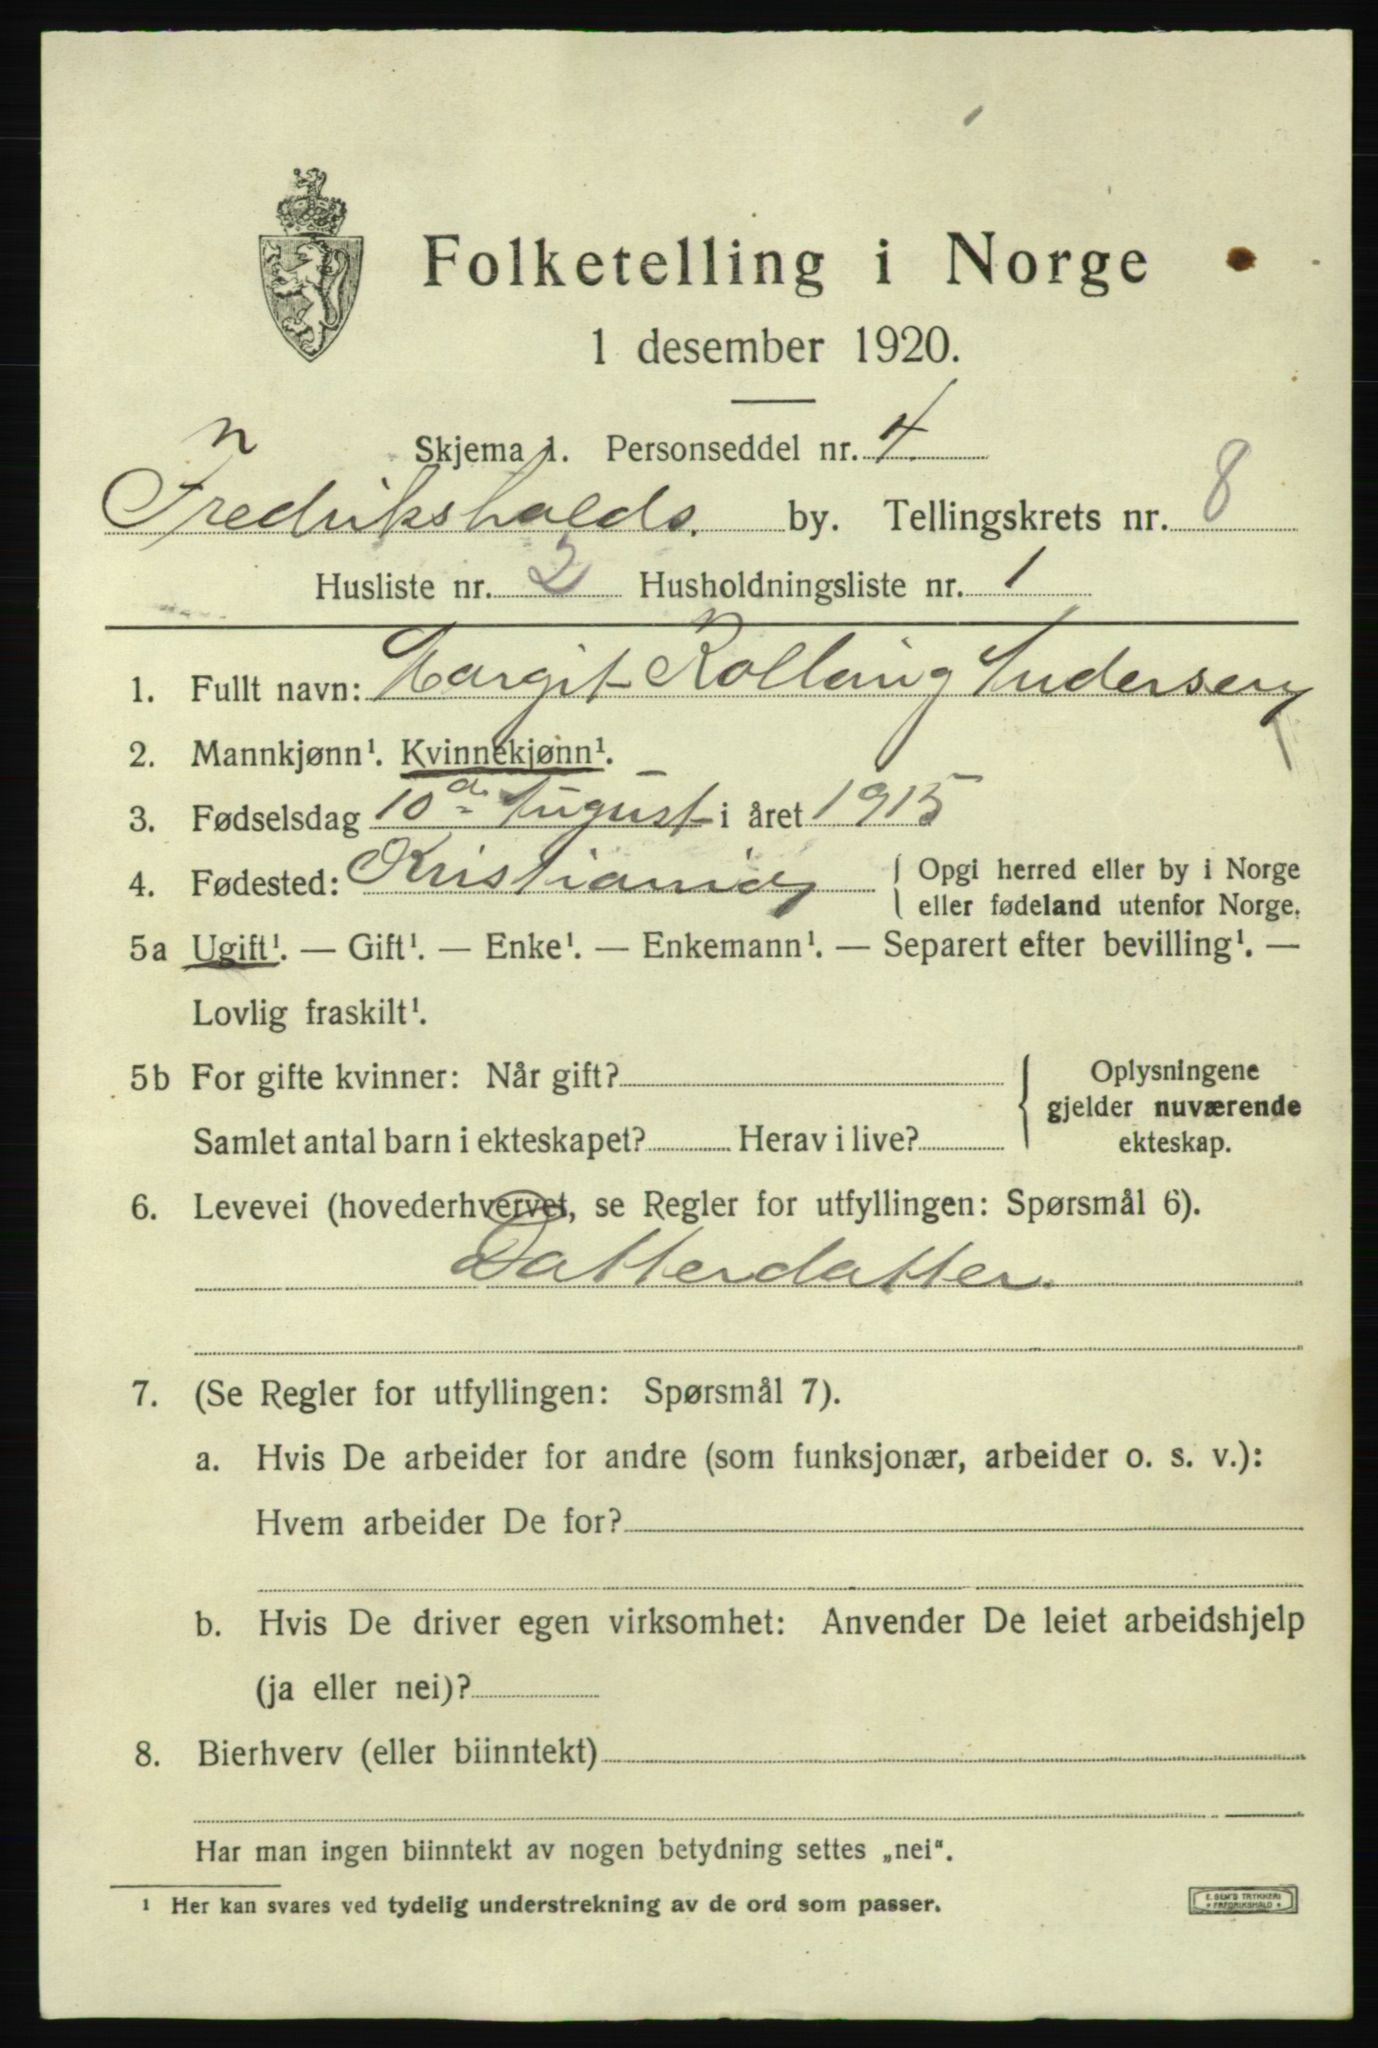 Folketelling i Norge
1 desember 1920.
n
Skjema 1. Personseddel nr. 4.
Fredrikshalds. by. Tellingskrets nr. 8
Husliste nr. 2 Husholdningsliste nr. 1
1. Fullt navn: Margit Kollung Andersen
2. Mannkjønn¹. Kvinnekjønn¹.
3. Fødselsdag 10de August i året 1915
4. Fødested: Kristiania { Opgi herred eller by i Norge
eller fødeland utenfor Norge.
5a Ugift¹. — Gift¹. — Enke¹. — Enkemann¹. — Separert efter bevilling¹. —
Lovlig fraskilt¹.
5b For gifte kvinner: Når gift?
Samlet antal barn i ekteskapet? Herav i live?
Oplysningene
gjelder nuværende
ekteskap.
6. Levevei (hovederhvervet, se Regler for utfyllingen: Spørsmål 6).
Datterdatter.
7. (Se Regler for utfyllingen: Spørsmål 7).
a. Hvis De arbeider for andre (som funksjonær, arbeider o. s. v.):
Hvem arbeider De for?
b. Hvis De driver egen virksomhet: Anvender De leiet arbeidshjelp
(ja eller nei)?
8. Bierhverv (eller biinntekt)
Har man ingen biinntekt av nogen betydning settes „nei“.
¹ Her kan svares ved tydelig understrekning av de ord som passer.
E. SEM'S TRYKKERI
* FREDRIKSHALD *